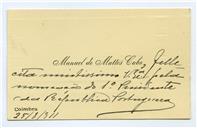 Manuel de Mattos Cid, felli
cita muitissimo V. Ex.ª pela
nomeação de 1º Presidente
da Republica Portugueza
Coimbra
25/8/911